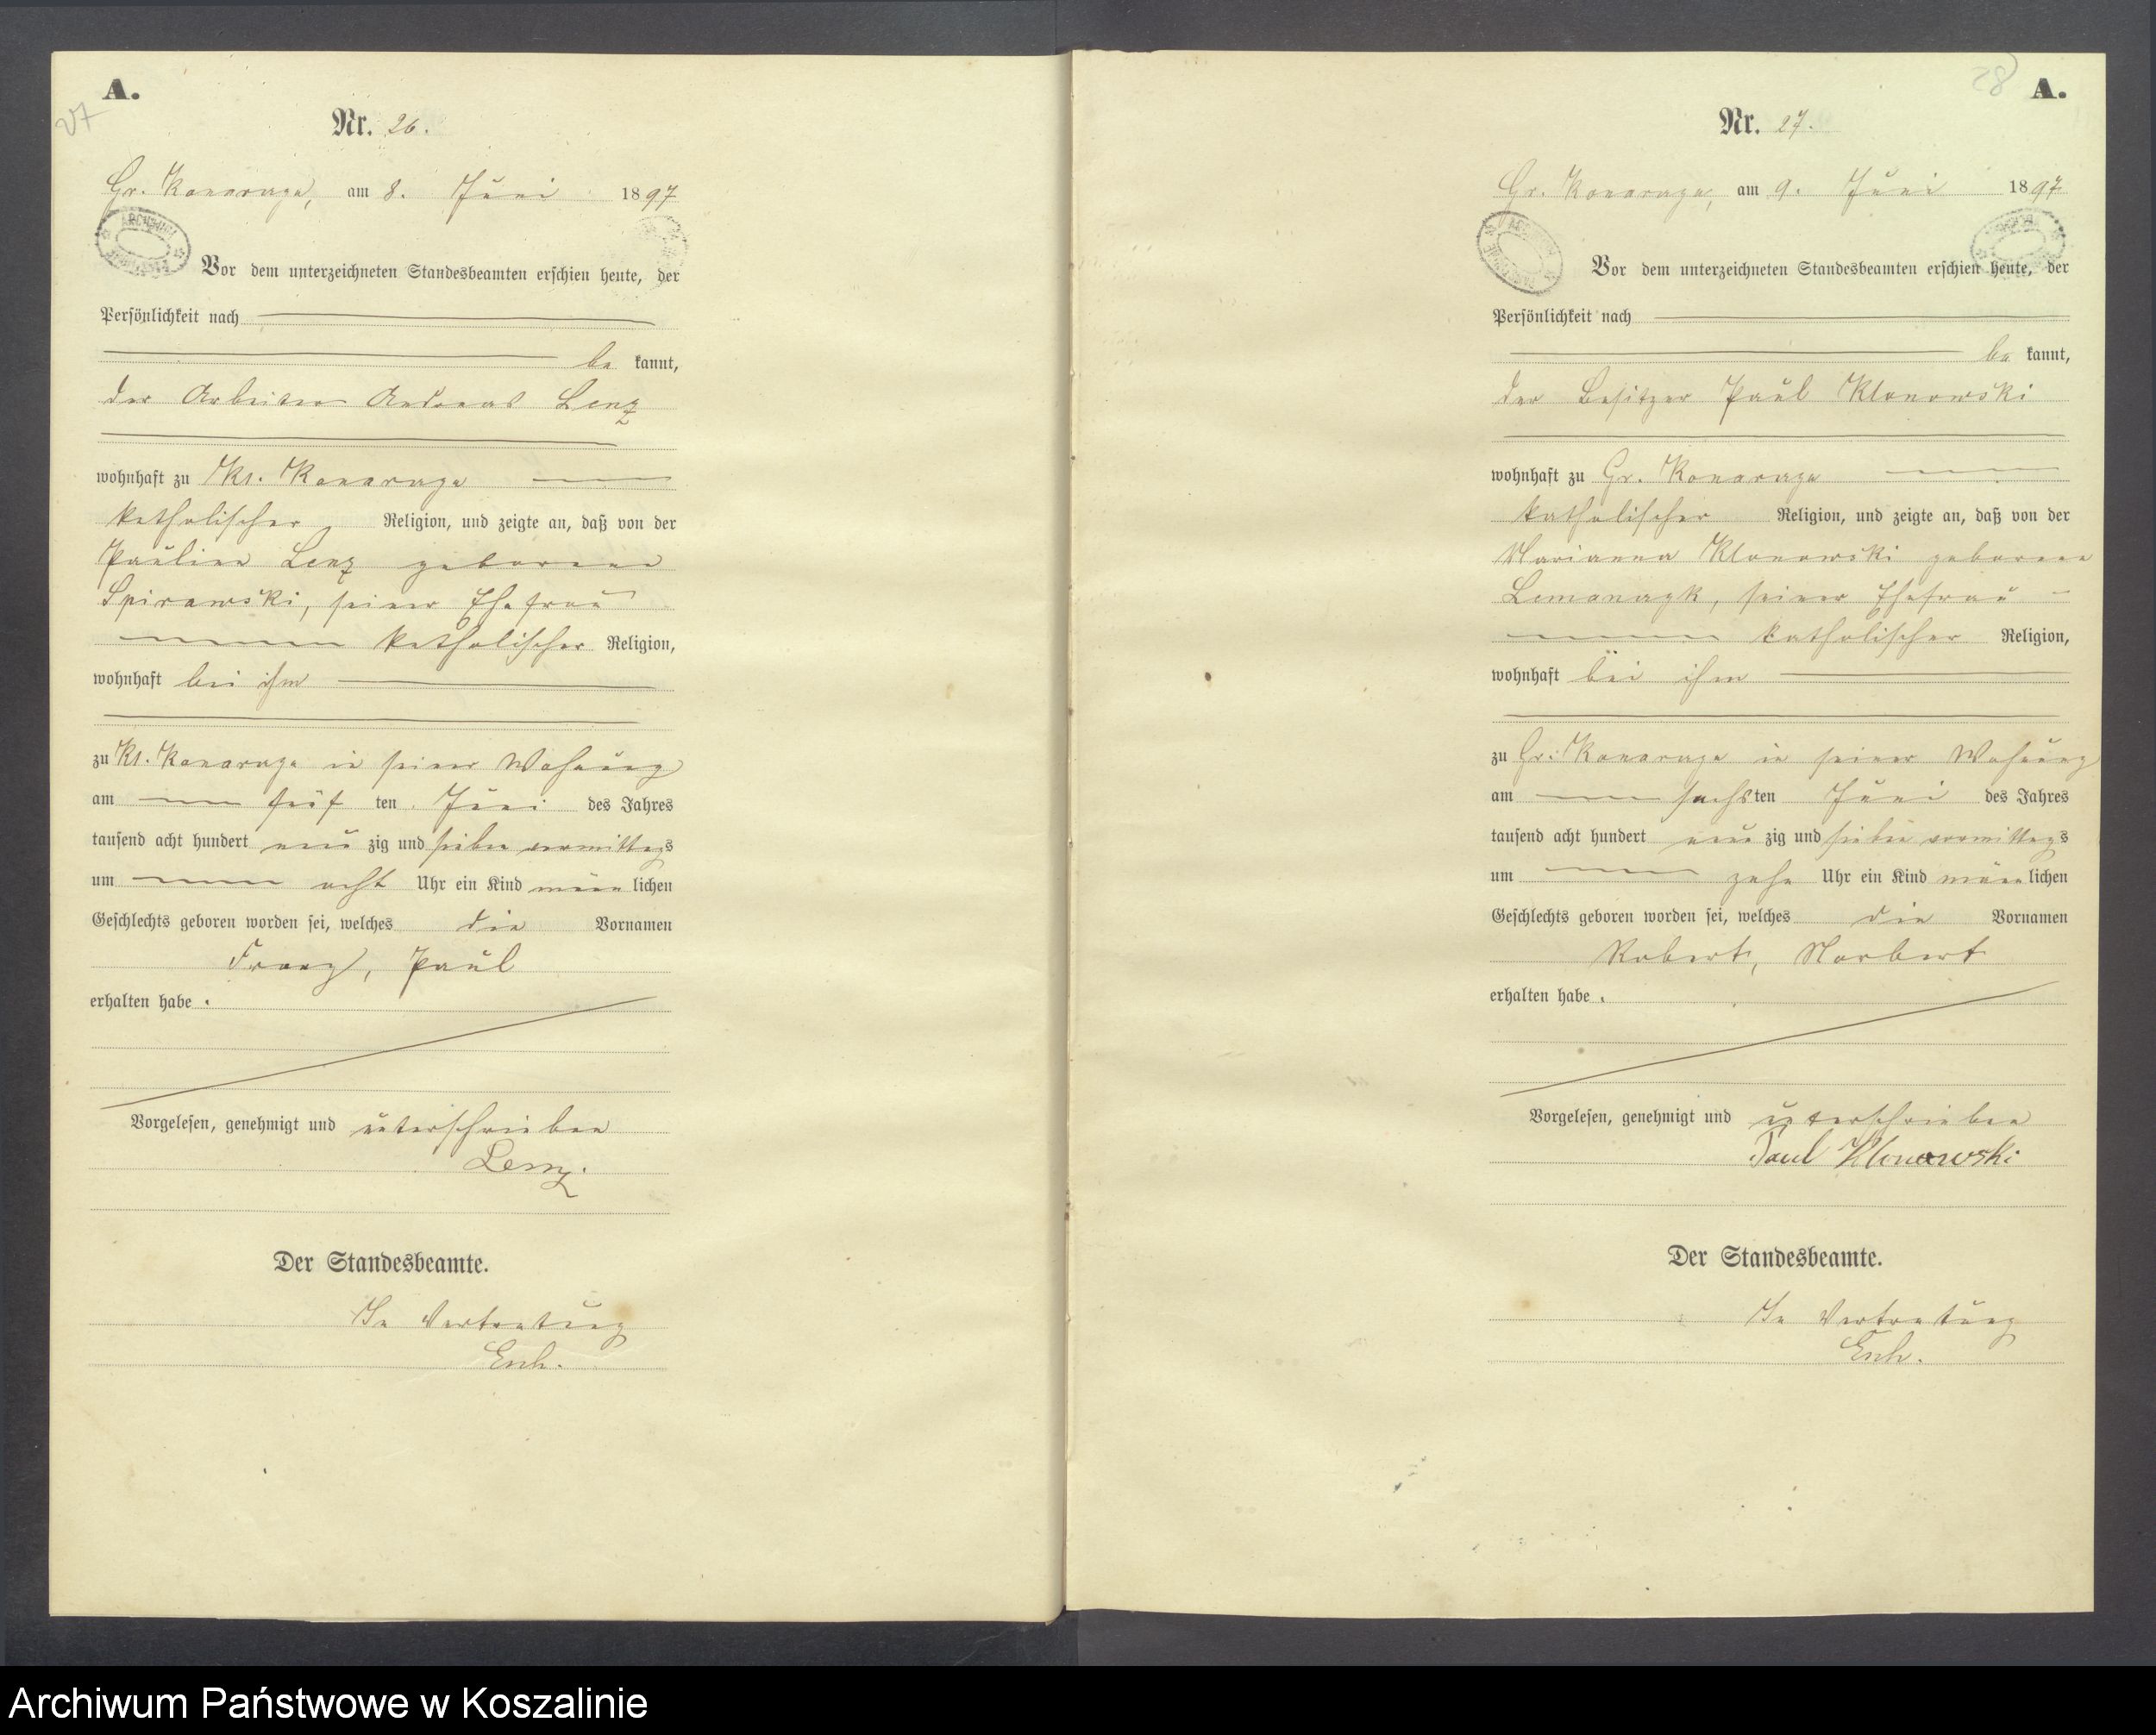 A.
27
Nr. 26.
Gr. Konarczyn, am 8. Juni 1897
Vor dem unterzeichneten Standesbeamten erschien heute, der
Persönlichkeit nach
be kannt,
der Arbeiter Andreas Lenz
wohnhaft zu Kl. Konarczyn
katholischer Religion, und zeigte an, daß von der
Pauline Lenz geborene
seiner Ehefrau
katholischer Religion,
wohnhaft bei ihm
zu Kl. Konarczyn in seiner Wohnung
am fünf ten Juni des Jahres
tausend acht hundert neun zig und sieben vormittags
um acht Uhr ein Kind männ lichen
Geschlechts geboren worden sei, welches die Vornamen
Franz, Paul
erhalten habe.
Vorgelesen, genehmigt und unterschrieben
Lenz.
Der Standesbeamte.
In Vertretung
28
A.
Nr. 27.
Gr. Konarczyn, am 9. Juni 1897
Vor dem unterzeichneten Standesbeamten erschien heute, der
Persönlichkeit nach
be kannt,
der Besitzer Paul Klonowski
wohnhaft zu Gr. Konarczyn
katholischer Religion, und zeigte an, daß von der
Marianna Klonowski geborene
seiner Ehefrau
katholischer Religion,
wohnhaft bei ihm
zu Gr. Konarczyn in seiner Wohnung
am sechsten Juni des Jahres
tausend acht hundert neun zig und sieben vormittags
um zehn Uhr ein Kind männ lichen
Geschlechts geboren worden sei, welches die Vornamen
Robert, Norbert
erhalten habe.
Vorgelesen, genehmigt und unterschrieben
Paul Klonowski
Der Standesbeamte.
In Vertretung
Archiwum Państwowe w Koszalinie